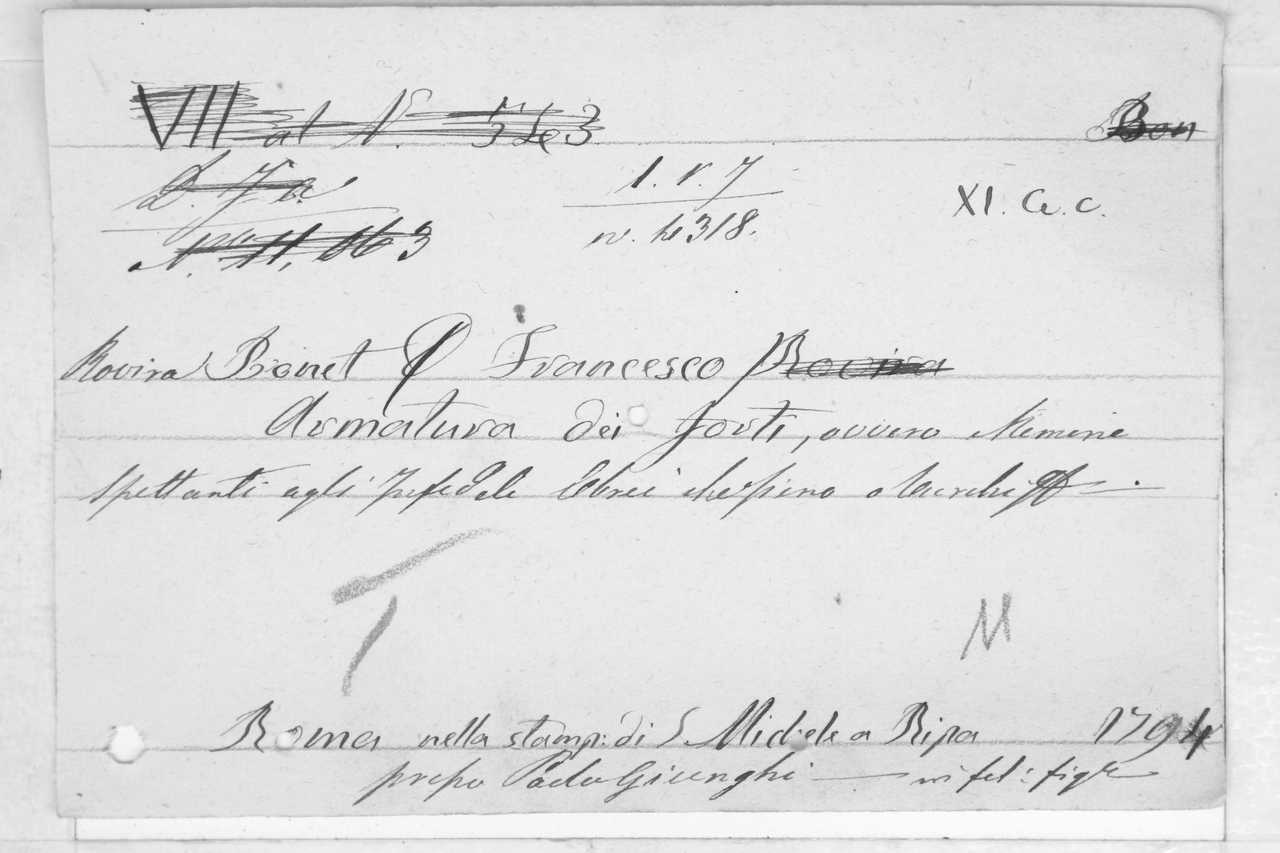 VII al N. 3
Bon
D.
1. V. 7
XI. C. c.
N. 11, 663
n. 4318.
Rovira Bonet D Francesco Rovira
Armatura dei forti, ovvero Memorie
spettanti agli Infedeli Ebrei che sieno o Turchi
T
M
Roma nella stamp: di S Michele a Ripa 1794
presso Paolo Giunchi in fol: fig